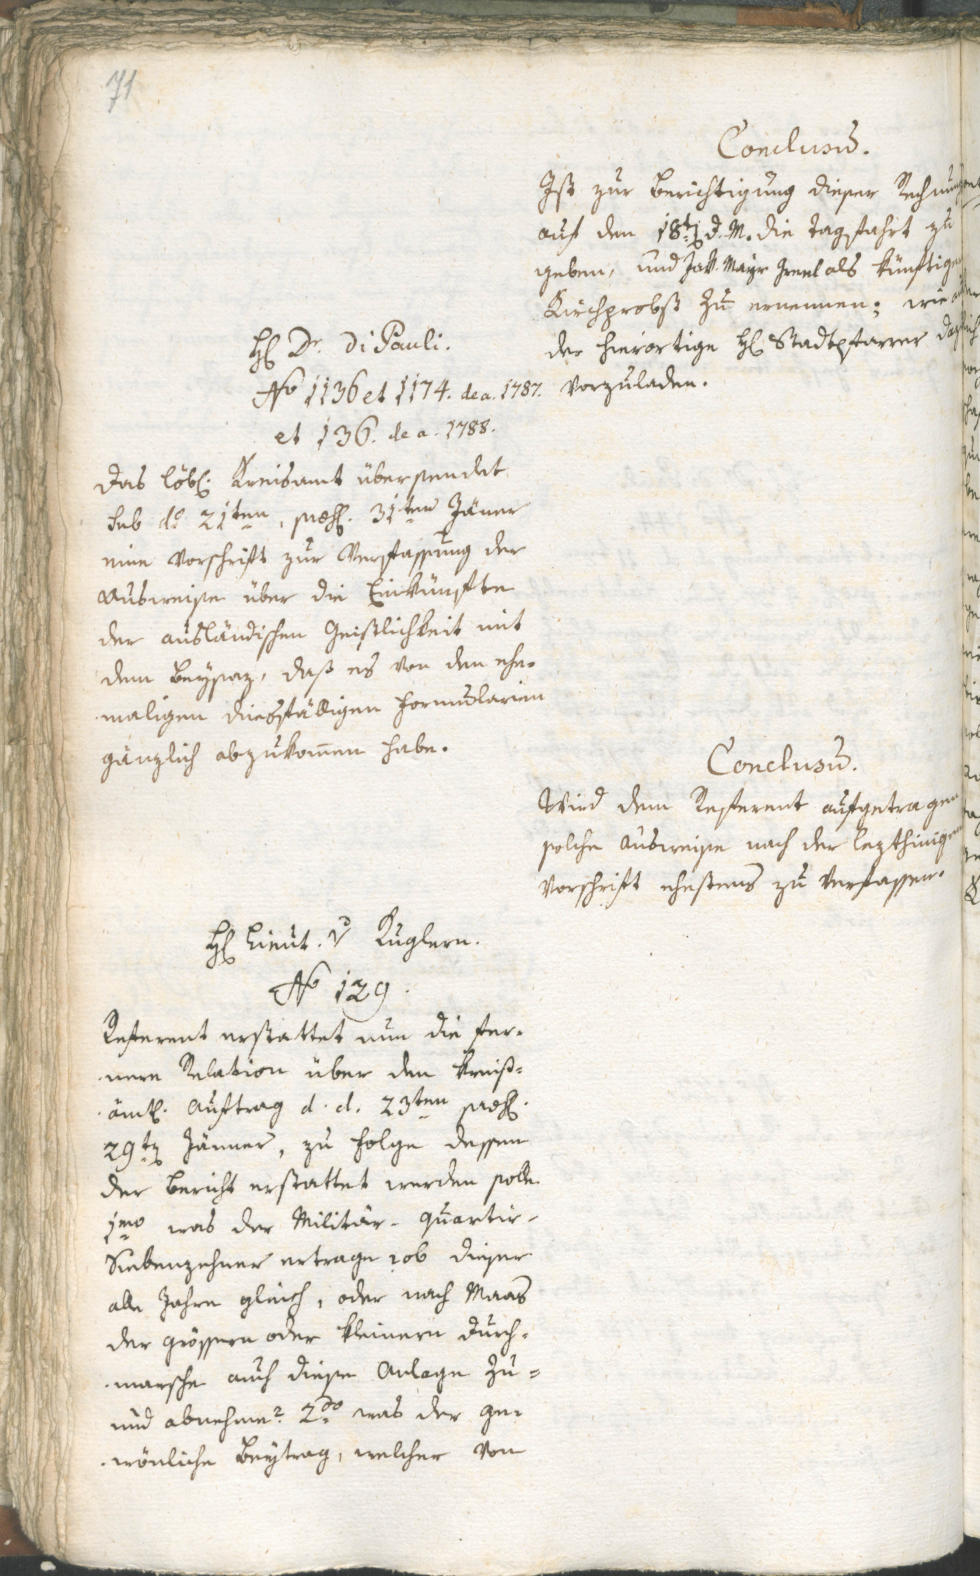 71
Conclusũ.
Ist zur Berichtigung dieser Rechnung
auf den 18t: d. M. die Tagsfahrt zu
geben, und Jak. Mayr als künftigen
Kirchprobst zu ernennen; wie
der hierortige H: Stadtpfarrer
vorzuladen.
H: Dr. Di Pauli.
No 1136 et 1174. de a. 1787.
et 136. de a. 1788.
Das löbl: Kreisamt übersendet
sub do 21ten, præs. 31ten Jäner
eine Vorschrift zur Verfassung der
Ausweise über die Einkünften
der ausländischen Geistlichkeit mit
dem Beysaz, daß es von den ehe-
maligen diesfälligen Formularien
gänzlich abzukom̄en habe.
Conclusũ.
Wird dem Referent aufgetragen
solche Ausweise nach der lezthinigen
Vorschrift ehestens zu verfassen.
H: Lieut. v Kuglern.
No 129.
Referent erstattet nun die fer-
nere Relation über den kreis-
ämtl. Auftrag d. d. 23ten præs.
29t: Jänner, zu folge dessen
der Bericht erstattet werden solle
1mo was der Militär-Quartir-
Siebenzehner ertrage? ob dieser
alle Jahre gleich, oder nach Maas
der grössern oder kleinern Durch-
marsche auch diese Anlage zu-
und abnehme? 2do was der ge-
wönliche Beytrag, welcher von